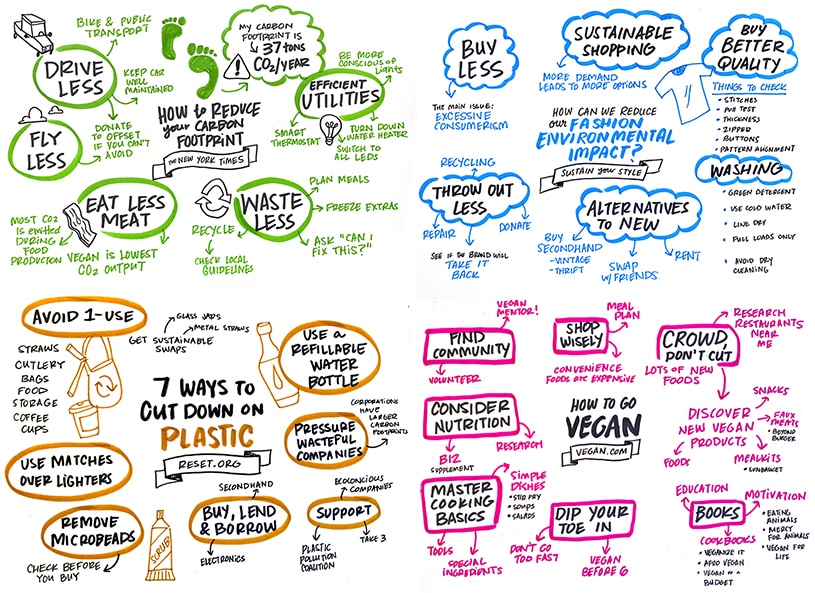 BIKE & PUBLIC
TRANSPORT
DRIVE
LESS
KEEP CAR
WELL
MAINTAINED
FLY
LESS
DONATE
TO OFFSET
IF YOU CAN'T
AVOID
MY CARBON
FOOTPRINT IS
37 TONS
CO2/YEAR
HOW to REDUCE
your CARBON
FOOTPRINT
THE NEW YORK TIMES
BE MORE
CONSCIOUS of
Lights
EFFICIENT
UTILITIES
SMART
THERMOSTAT
TURN DOWN
WATER HEATER
SWITCH TO
ALL LEDS
EAT LESS
MEAT
MOST CO2
is EMITTED
DURING
FOOD
PRODUCTION
VEGAN is LOWEST
CO2 OUTPUT
WASTE
LESS
PLAN MEALS
FREEZE EXTRAS
ASK "CAN I
FIX THIS?"
RECYCLE
CHECK LOCAL
GUIDELINES
BUY
LESS
THE MAIN ISSUE:
EXCESSIVE
CONSUMERISM
SUSTAINABLE
SHOPPING
MORE DEMAND
LEADS TO MORE OPTIONS
BUY
BETTER
QUALITY
THINGS TO CHECK
• STITCHES
• THICKNESS
• ZIPPER
• BUTTONS
• PATTERN ALIGNMENT
HOW CAN WE REDUCE
OUR FASHION
ENVIRONMENTAL
IMPACT?
SUSTAIN your STYLE
WASHING
• GREEN DETERGENT
• USE COLD WATER
• LINE DRY
• FULL LOADS ONLY
• AVOID DRY
CLEANING
RECYCLING
THROW OUT
LESS
REPAIR
DONATE
SEE IF THE BRAND WILL
TAKE IT
BACK
ALTERNATIVES
to NEW
BUY
SECONDHAND
- VINTAGE
- THRIFT
SWAP
W/FRIENDS
RENT
AVOID 1-USE
GLASS JARS
METAL STRAWS
GET SUSTAINABLE
SWAPS
STRAWS
CUTLERY
BAGS
FOOD
STORAGE
COFFEE
CUPS
USE a
REFILLABLE
WATER
BOTTLE
7 WAYS TO
CUT DOWN ON
PLASTIC
RESET.ORG
CORPORATIONS
HAVE
LARGER
CARBON
FOOTPRINTS
PRESSURE
WASTEFUL
COMPANIES
USE MATCHES
OVER LIGHTERS
REMOVE
MICROBEADS
CHECK BEFORE
YOU BUY
SCRUB
SECONDHAND
BUY, LEND
& BORROW
ELECTRONICS
ECOCONSCIOUS
COMPANIES
SUPPORT
PLASTIC
POLLUTION
COALITION
TAKE 3
VEGAN
MENTOR!
FIND
COMMUNITY
VOLUNTEER
SHOP
WISELY
MEAL
PLAN
CONVENIENCE
FOODS are EXPENSIVE
CROWD,
DON'T CUT
RESEARCH
RESTAURANTS
NEAR
ME
LOTS OF NEW
FOODS
CONSIDER
NUTRITION
B12
SUPPLEMENT
RESEARCH
HOW TO GO
VEGAN
VEGAN.COM
DISCOVER
NEW VEGAN
PRODUCTS
SNACKS
FAUX
MEATS
• BEYOND
BURGER
MEALKITS
FOODS
MASTER
COOKING
BASICS
SIMPLE
DISHES
• STIR FRY
• SOUPS
• SALADS
TOOLS
SPECIAL
INGREDIENTS
DIP YOUR
TOE IN
DON'T GO
TOO FAST
VEGAN
BEFORE 6
EDUCATION
BOOKS
MOTIVATION
• EATING
ANIMALS
• MERCY
FOR ANIMALS
• VEGAN FOR
LIFE
COOKBOOKS
• VEGANIZE IT
• AFRO VEGAN
• VEGAN on a
BUDGET